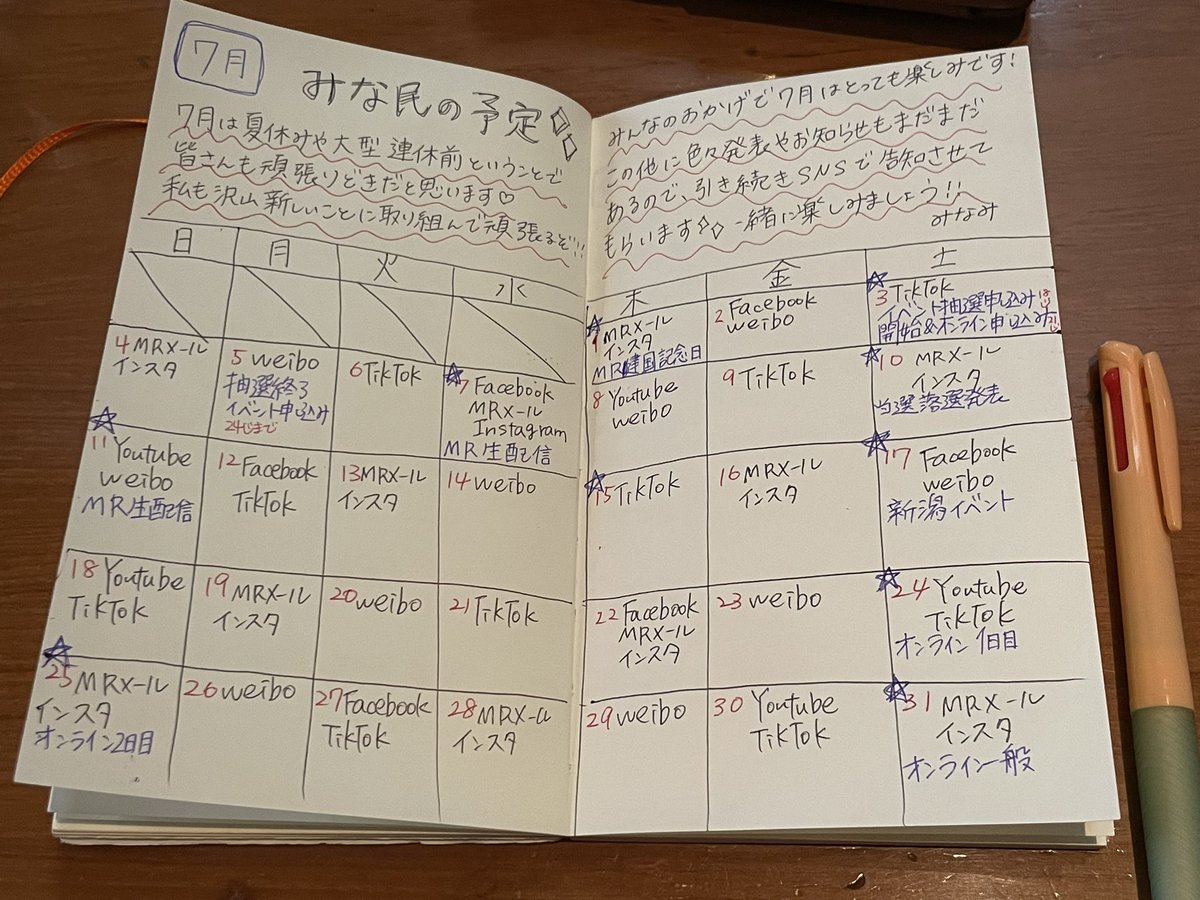 7月
みな民の予定
7月は夏休みや大型連休前ということで
皆さんも頑張りどきだと思います♡
私も沢山新しいことに取り組んで頑張るぞ!!
みんなのおかげで7月はとっても楽しみです!
この他に色々発表やお知らせもまだまだ
あるので、引き続きSNSで告知させて
もらいます 一緒に楽しみましょう!!
みなみ
日 月 火 水 木 金 土
☆1 MRメール
インスタ
MR建国記念日
2 Facebook
weibo
☆3 TikTok
イベント抽選申し込み
開始&オンライン申し込み
4 MRメール
インスタ
5 weibo
抽選終了
イベント申し込み
24じまで
6 TikTok
☆7 Facebook
MRメール
Instagram
MR生配信
8 Youtube
weibo
9 TikTok
☆10 MRメール
インスタ
当選落選発表
☆11 Youtube
weibo
MR生配信
12 Facebook
TikTok
13 MRメール
インスタ
14 weibo
☆15 TikTok
16 MRメール
インスタ
☆17 Facebook
weibo
新潟イベント
18 Youtube
TikTok
19 MRメール
インスタ
20 weibo
21 TikTok
22 Facebook
MRメール
インスタ
23 weibo
☆24 Youtube
TikTok
オンライン1日目
☆25 MRメール
インスタ
オンライン2日目
26 weibo
27 Facebook
TikTok
28 MRメール
インスタ
29 weibo
30 Youtube
TikTok
☆31 MRメール
インスタ
オンライン一般